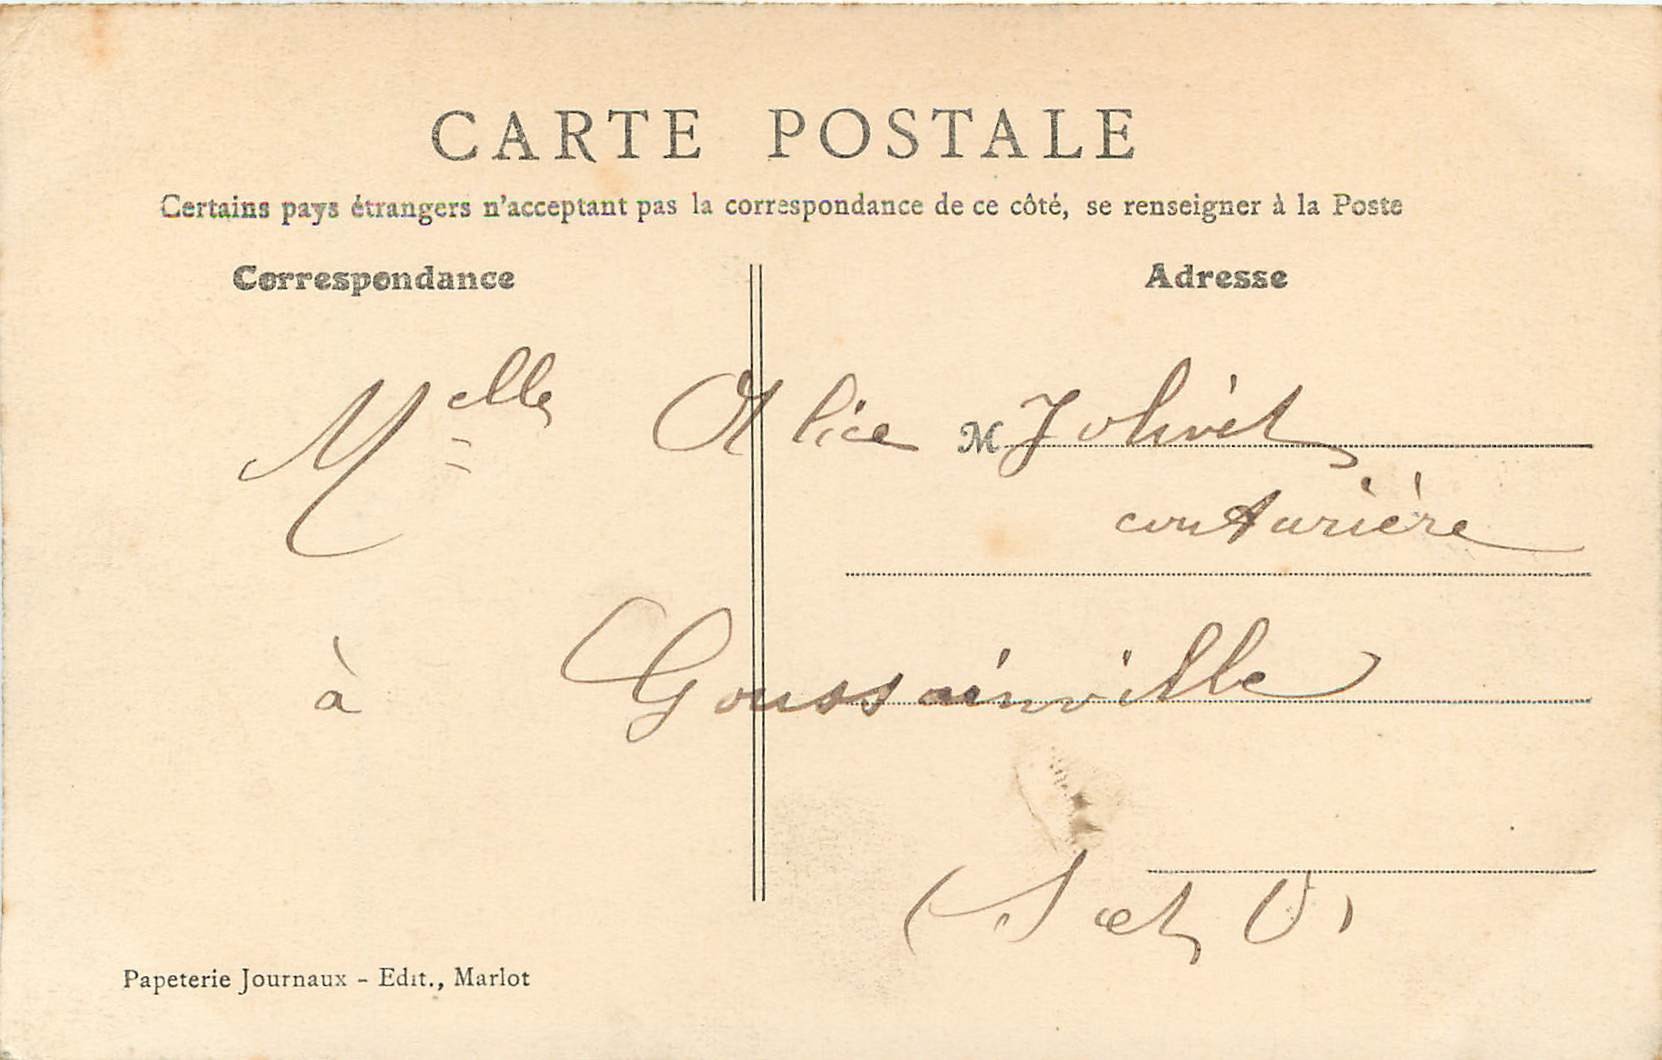 CARTE POSTALE
Certains pays étrangers n'acceptant pas la correspondance de ce côté, se renseigner à la Poste
Correspondance
Adresse
Melle Alice M Jolivet
couturière
à Goussainville
(S et O)
Papeterie Journaux - Edit., Marlot